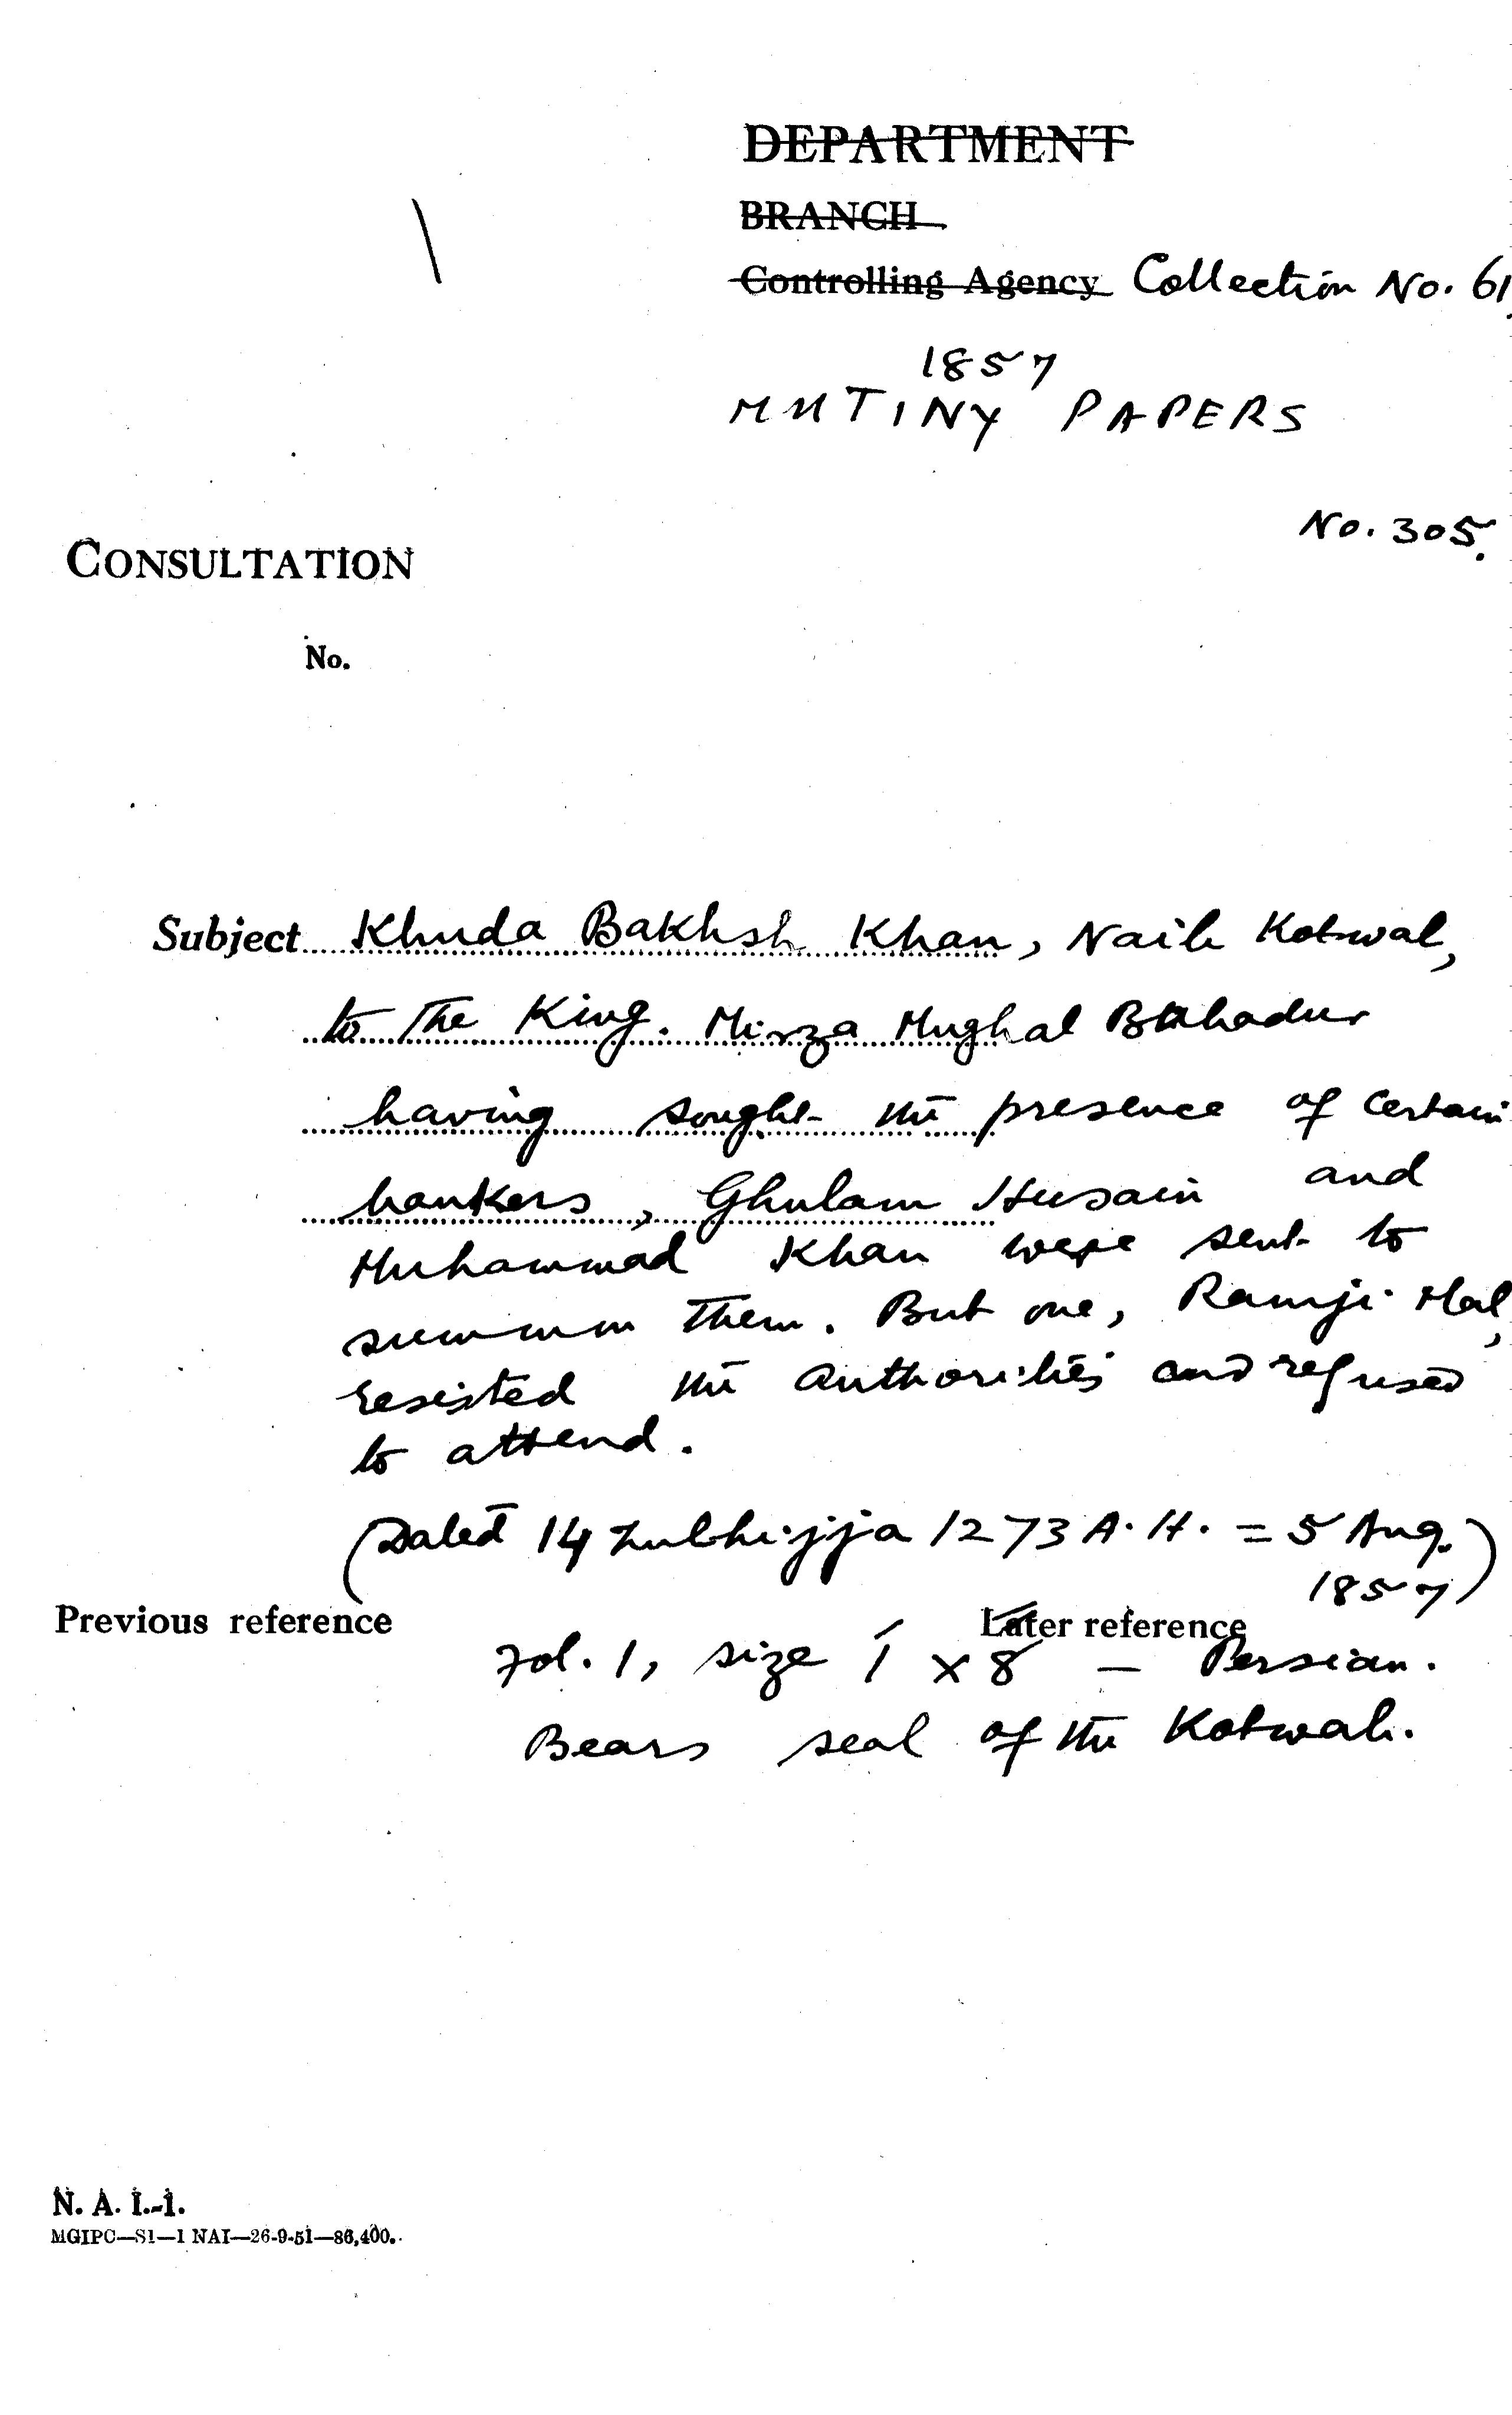 DEPARTMENT
BRANCH
Controlling Agency Collection No. 61
1857
MUTINY PAPERS
No. 305.
CONSULTATION
No.
Subject Khuda Bakhsh Khan, Naib Kotwal,
to the King. Mirza Mughal Bahadur
having sought the presence of certain
bankers, Ghulam Husain and
Muhammad Khan were sent to
summon them. But one, Ramji Mal,
resisted the authorities and refused
to attend.
(Dated 14 Zulhijja 1273 A.H. = 5 Aug.
1857)
Previous reference
Later reference
Fol. 1, size 1 x 8 — Persian.
Bears seal of the Kotwali.
N. A. I.-1.
MGIPC—S1—1 NAI—26-9-51—86,400.